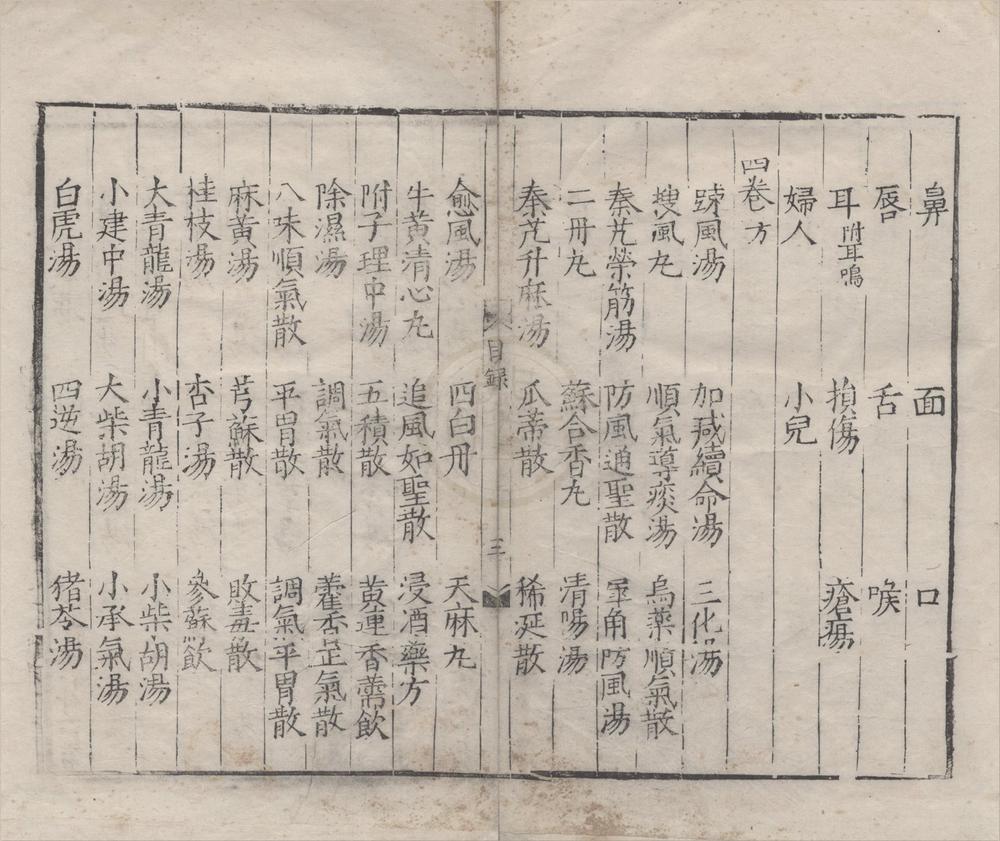 鼻　面　口
唇　舌　喉
耳附耳鳴　損傷　瘡瘍
婦人　小兒
四卷方
踈風湯　加减續命湯　三化湯
搜風九　順氣導痰湯　烏藥順氣散
秦艽榮筋湯　防風通聖散　犀角防風湯
二丹九　蘇合香九　清暘湯
秦艽升麻湯　瓜蒂散　稀涎散
目録　三
愈風湯　四白丹　天麻九
牛黃清心九　追風如聖散　浸酒藥方
附子理中湯　五積散　黃連香薷飲
除濕湯　調氣散　藿香正氣散
八味順氣散　平胃散　調氣平胃散
麻黃湯　芎蘇散　敗毒散
桂枝湯　杏子湯　參蘇飲
大青龍湯　小青龍湯　小柴胡湯
小建中湯　大柴胡湯　小承氣湯
白虎湯　四逆湯　猪苓湯